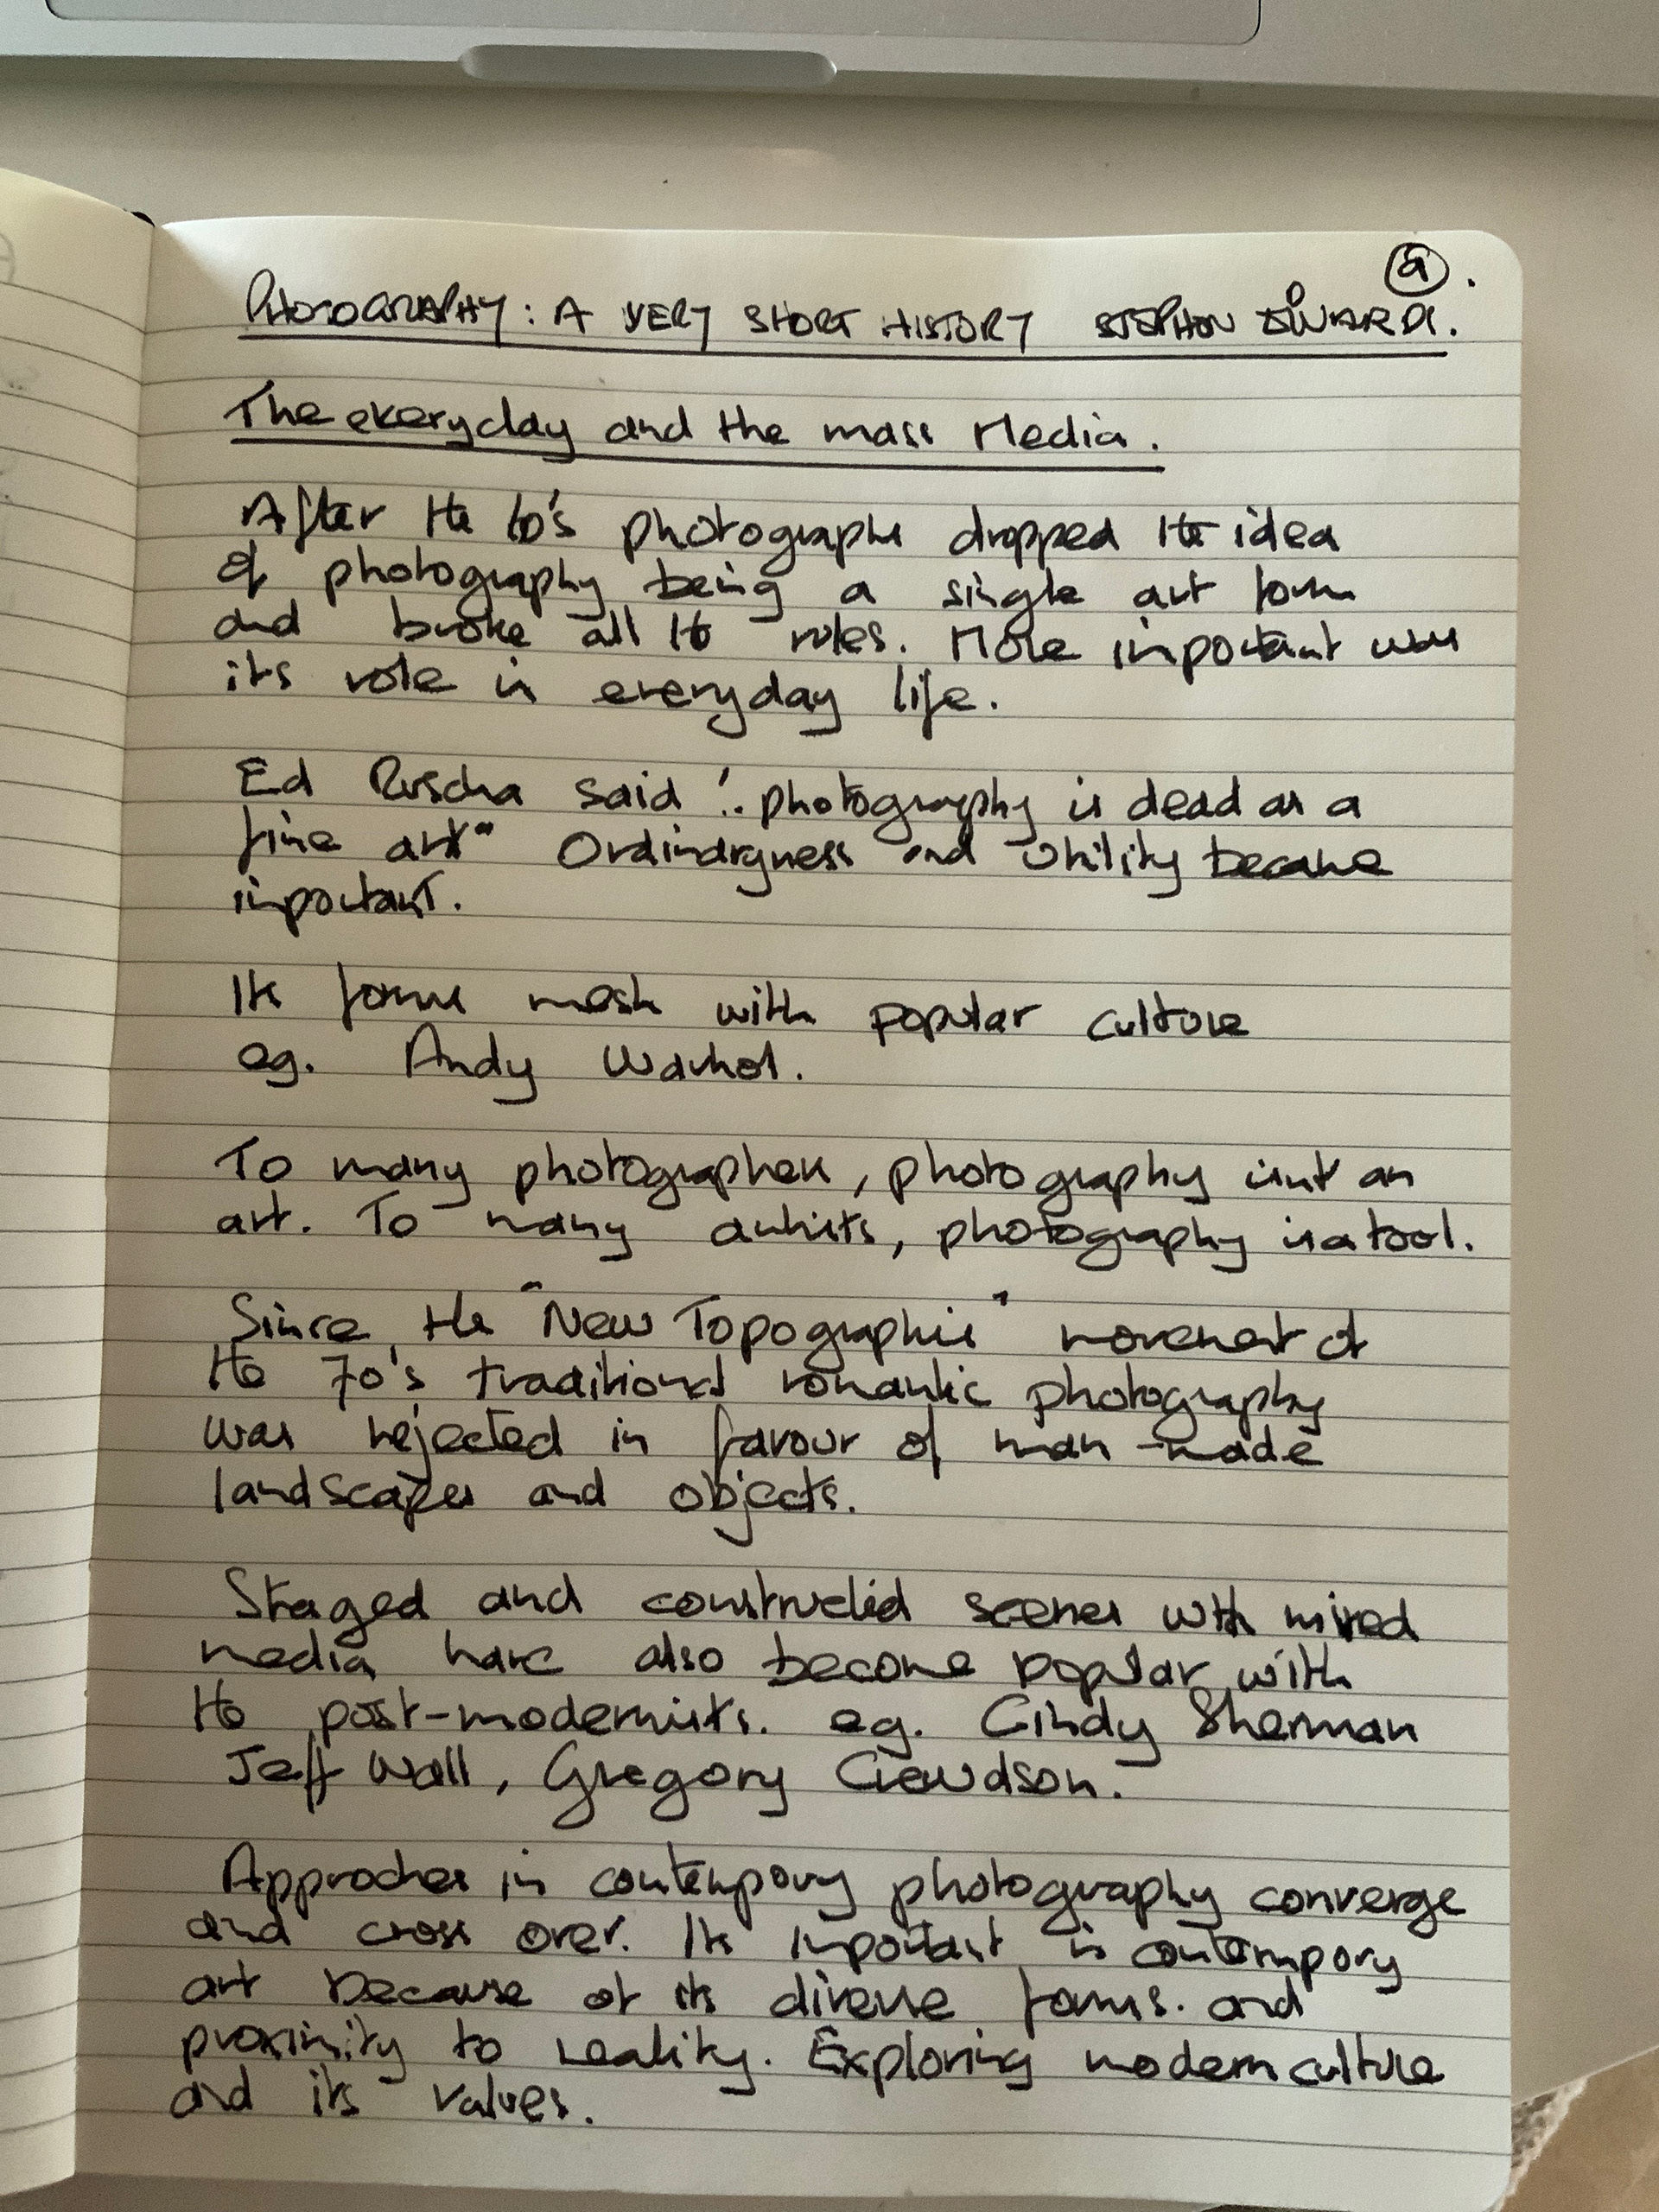 9.
PHOTOGRAPHY: A VERY SHORT HISTORY STEPHEN EDWARDS.
The everyday and the mass Media.
After the 60's photographs dropped the idea
of photography being a single art form
and broke all its rules. More important was
its role in everyday life.
Ed Ruscha said ".. photography is dead as a
fine art" Ordinaryness and Utility became
important.
Its forms mesh with popular culture
eg. Andy Warhol.
To many photographers, photography isnt an
art. To many artists, photography is a tool.
Since the "New Topographic" movement of
the 70's traditional romantic photography
was rejected in favour of man-made
landscapes and objects.
Staged and constructed scenes with mixed
media have also become popular with
the post-modernists. eg. Cindy Sherman
Jeff Wall, Gregory Crewdson.
Approches in contempory photography converge
and cross over. Its important in contempory
art because of its diverse forms. and
proximity to reality. Exploring modern culture
and its values.